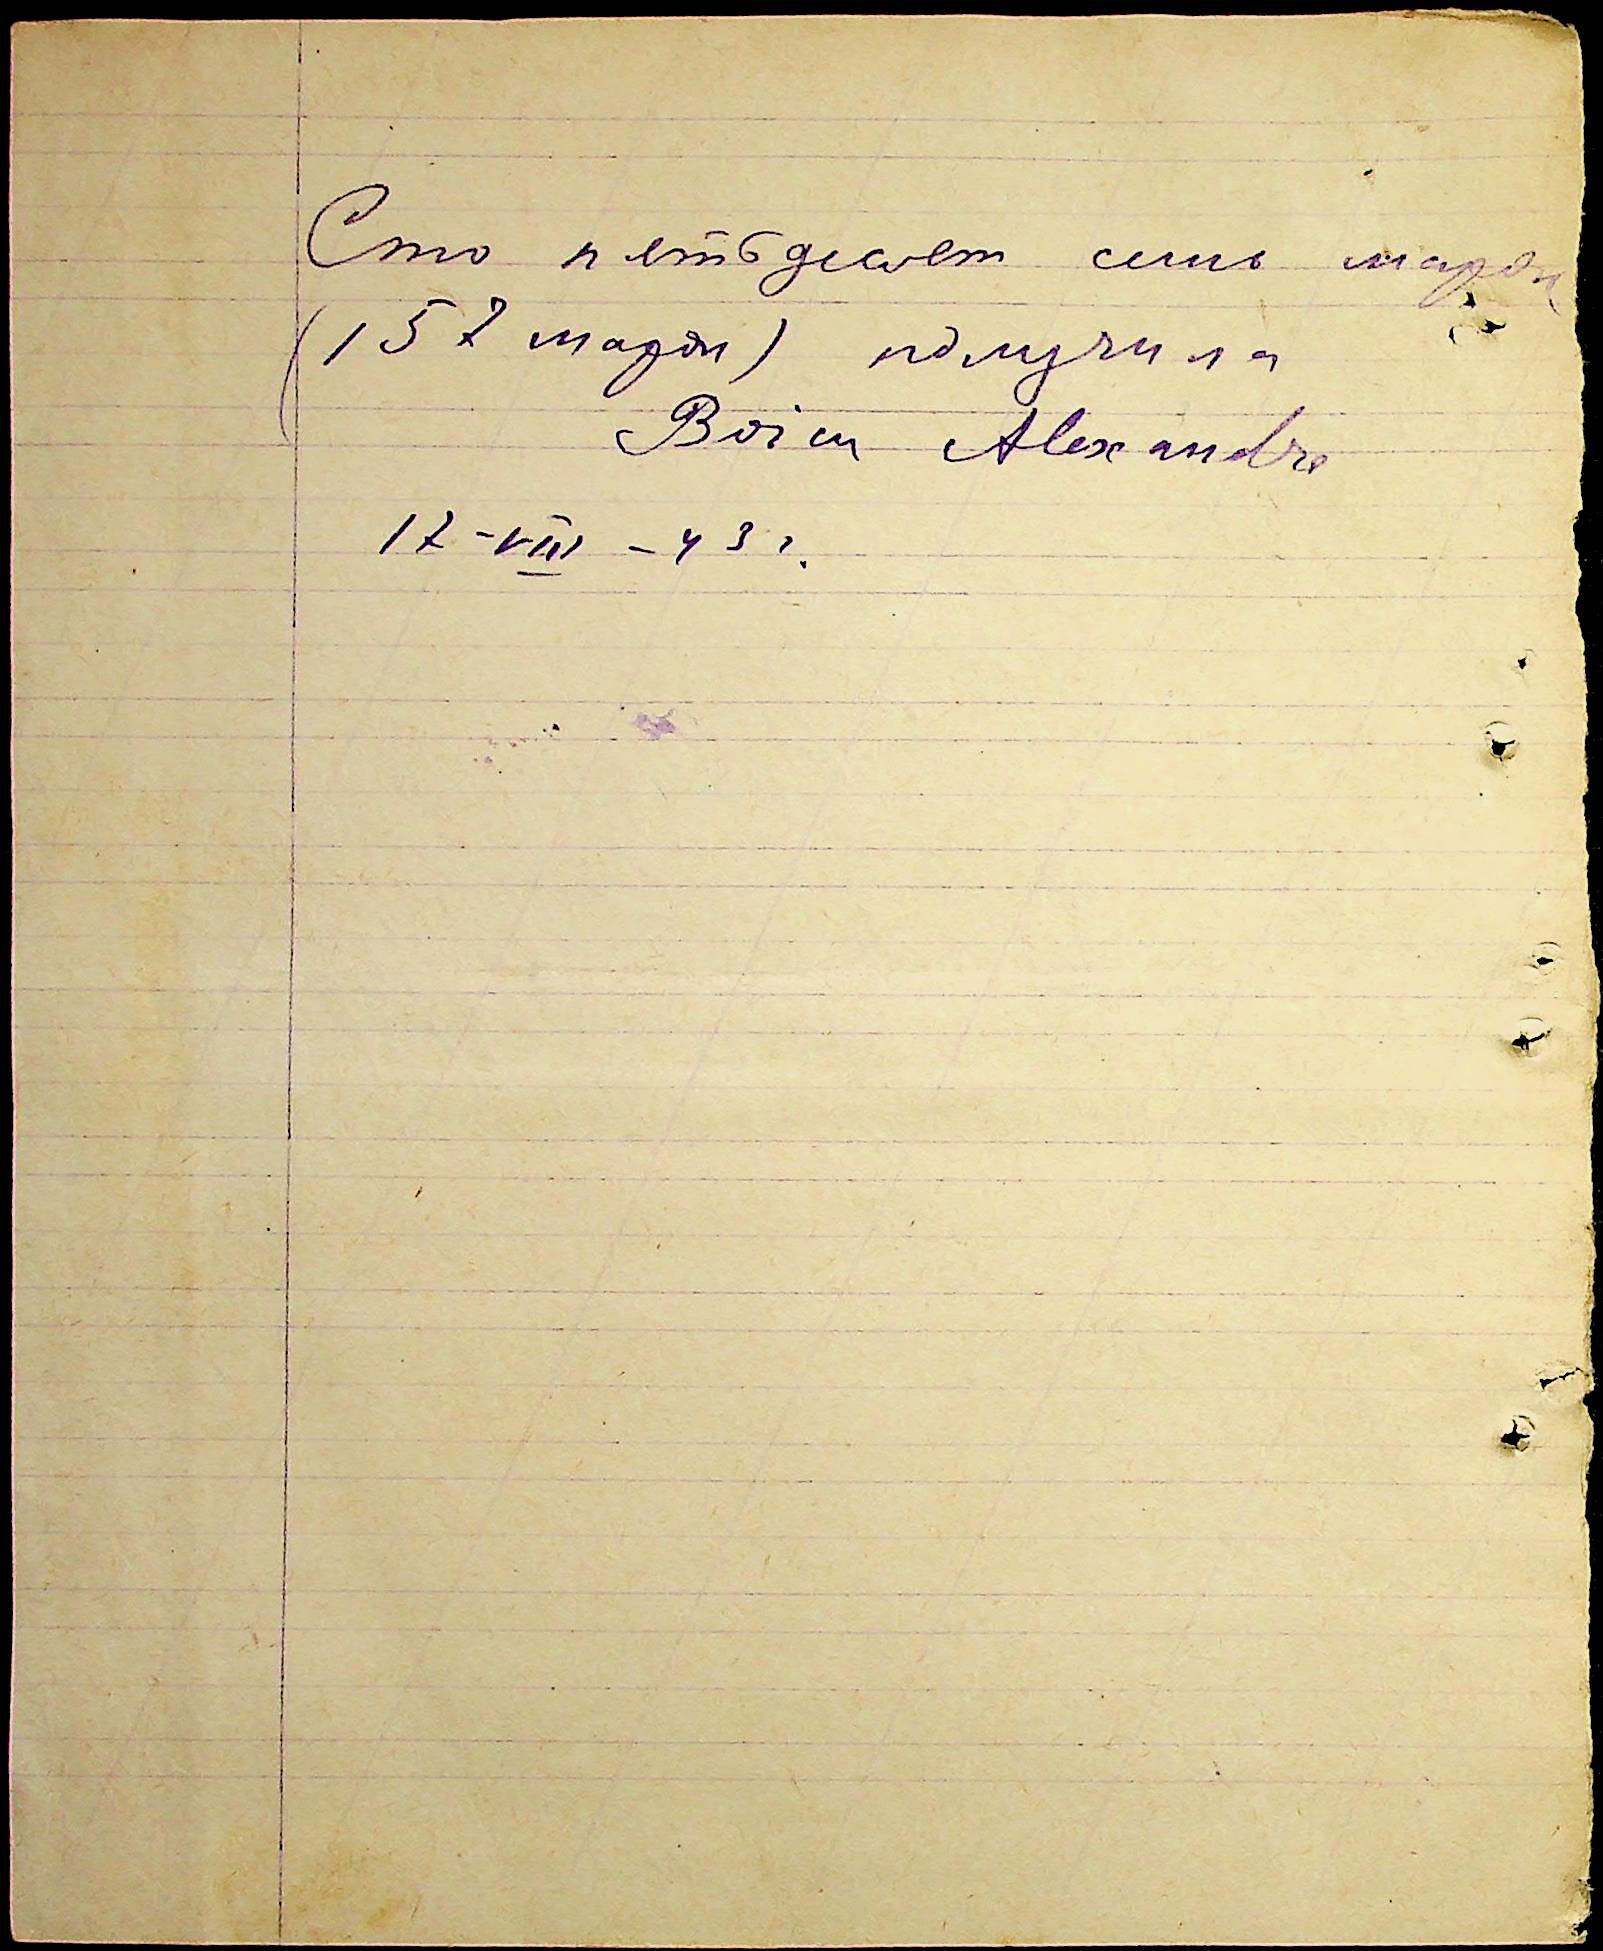 Сто пятьдесят семь марок
(157 марок) получила
Boicu Alexandra
17-VIII-43 г.